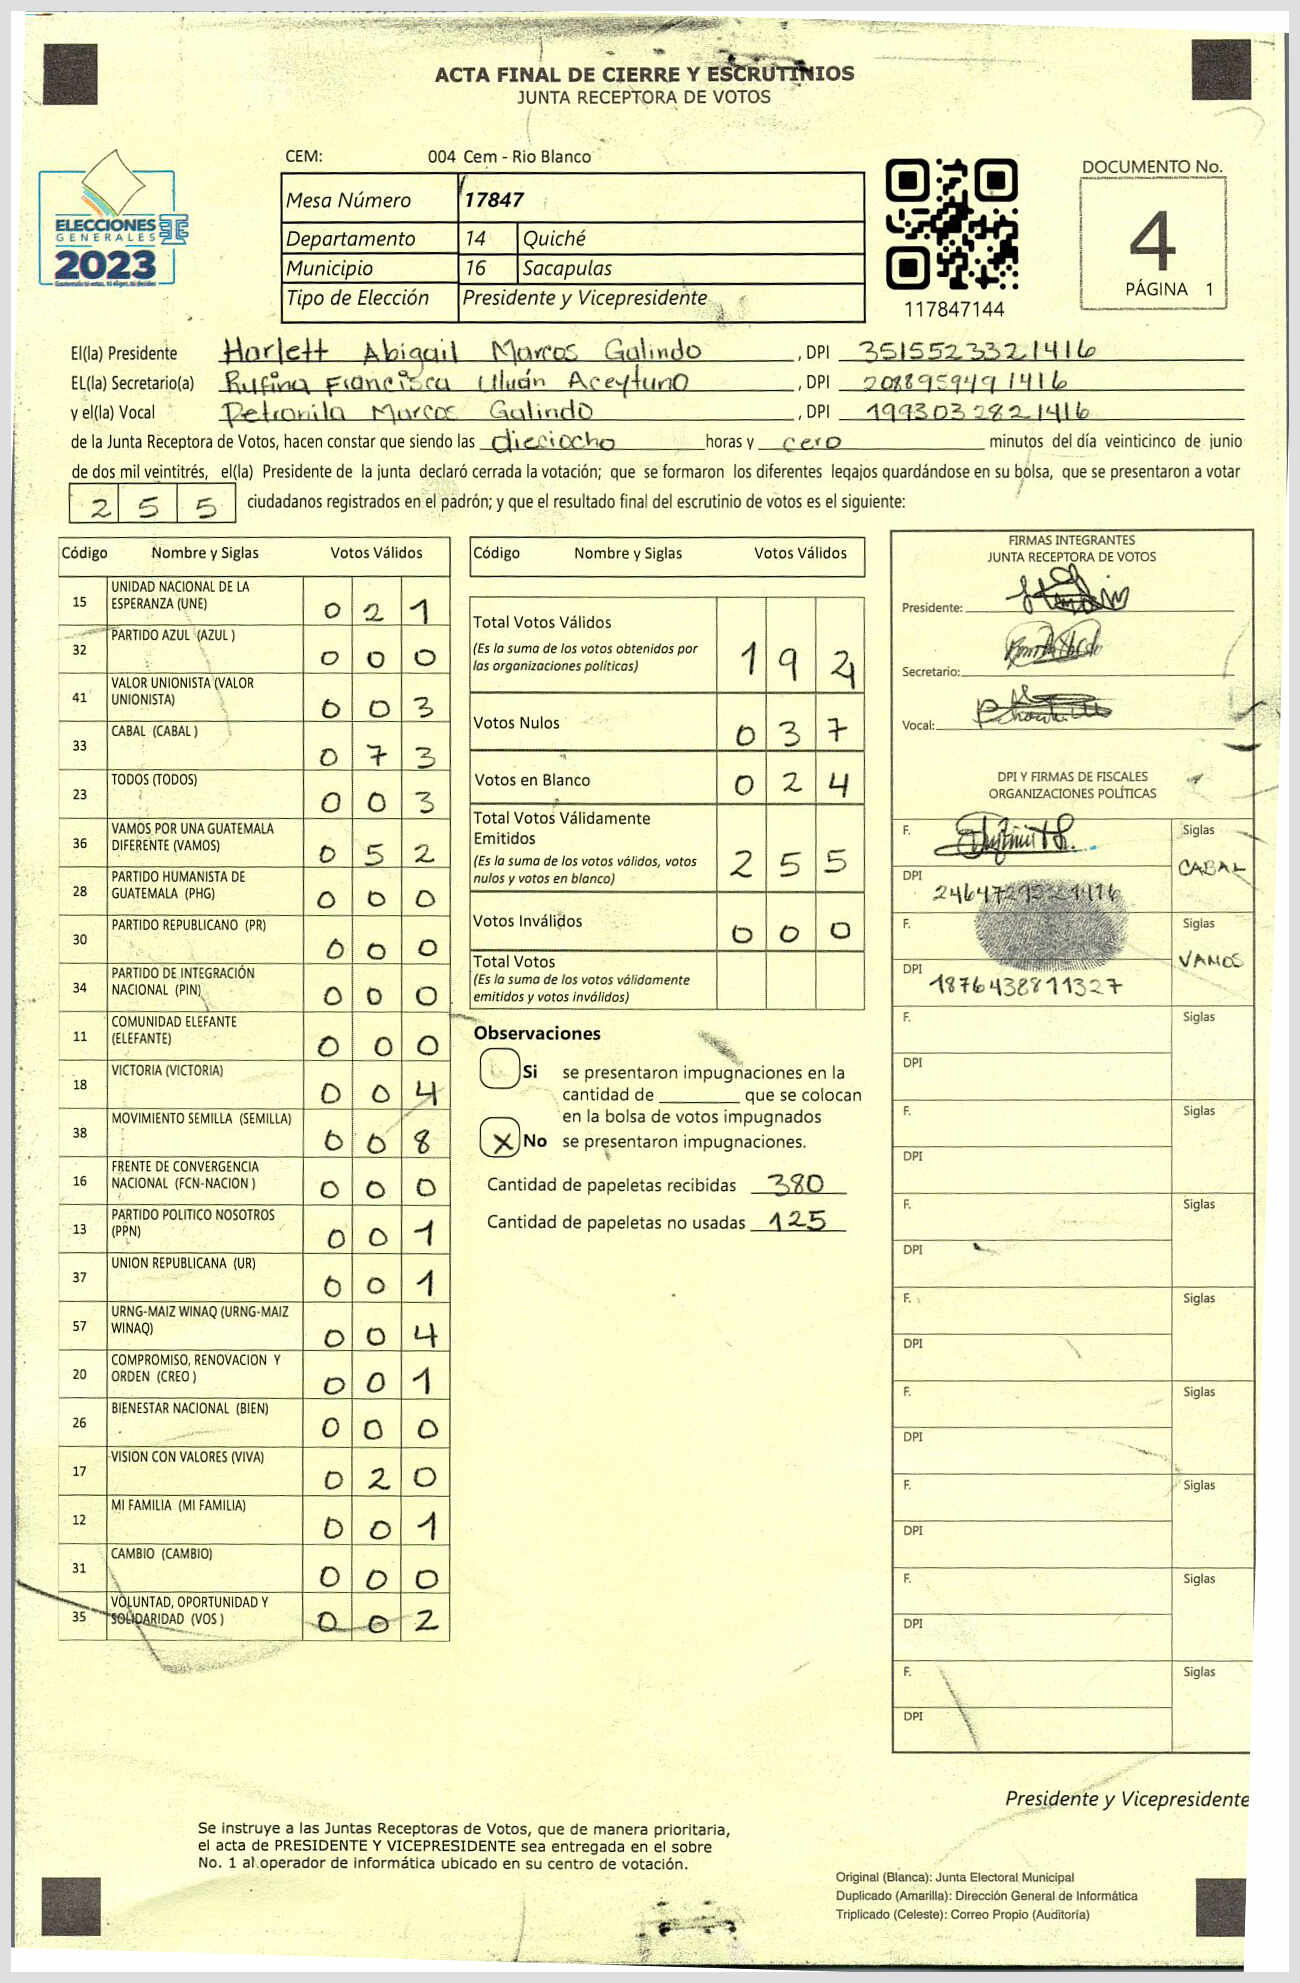 ACTA FINAL DE CIERRE Y ESCRUTINIOS
JUNTA RECEPTORA DE VOTOS
CEM: 004 Cem - Rio Blanco
ELECCIONES
GENERALES
2023
Mesa Número 17847
Departamento 14 Quiché
Municipio 16 Sacapulas
Tipo de Elección Presidente y Vicepresidente
117847144
DOCUMENTO No.
4
PÁGINA 1
El(la) Presidente Harlett Abigail Marcos Galindo, DPI 3515523321416
EL(la) Secretario(a) Rufina Francisca Uluán Aceytuno, DPI 2088959491416
y el(la) Vocal Petronila Marcos Galindo, DPI 1993032821416
de la Junta Receptora de Votos, hacen constar que siendo las dieciocho horas y cero minutos del día veinticinco de junio
de dos mil veintitrés, el(la) Presidente de la junta declaró cerrada la votación; que se formaron los diferentes legajos guardándose en su bolsa, que se presentaron a votar
255 ciudadanos registrados en el padrón; y que el resultado final del escrutinio de votos es el siguiente:
Código Nombre y Siglas Votos Válidos
15 UNIDAD NACIONAL DE LA ESPERANZA (UNE) 021
32 PARTIDO AZUL (AZUL ) 000
41 VALOR UNIONISTA (VALOR UNIONISTA) 003
33 CABAL (CABAL ) 073
23 TODOS (TODOS) 003
36 VAMOS POR UNA GUATEMALA DIFERENTE (VAMOS) 052
28 PARTIDO HUMANISTA DE GUATEMALA (PHG) 000
30 PARTIDO REPUBLICANO (PR) 000
34 PARTIDO DE INTEGRACIÓN NACIONAL (PIN) 000
11 COMUNIDAD ELEFANTE (ELEFANTE) 000
18 VICTORIA (VICTORIA) 004
38 MOVIMIENTO SEMILLA (SEMILLA) 008
16 FRENTE DE CONVERGENCIA NACIONAL (FCN-NACION ) 000
13 PARTIDO POLITICO NOSOTROS (PPN) 001
37 UNION REPUBLICANA (UR) 001
57 URNG-MAIZ WINAQ (URNG-MAIZ WINAQ) 004
20 COMPROMISO, RENOVACION Y ORDEN (CREO ) 001
26 BIENESTAR NACIONAL (BIEN) 000
17 VISION CON VALORES (VIVA) 020
12 MI FAMILIA (MI FAMILIA) 001
31 CAMBIO (CAMBIO) 000
35 VOLUNTAD, OPORTUNIDAD Y SOLIDARIDAD (VOS ) 002
Código Nombre y Siglas Votos Válidos
Total Votos Válidos
(Es la suma de los votos obtenidos por
las organizaciones políticas) 194
Votos Nulos 037
Votos en Blanco 024
Total Votos Válidamente
Emitidos
(Es la suma de los votos válidos, votos
nulos y votos en blanco) 255
Votos Inválidos 000
Total Votos
(Es la suma de los votos válidamente
emitidos y votos inválidos)
Observaciones
Si se presentaron impugnaciones en la
cantidad de ________ que se colocan
en la bolsa de votos impugnados
X No se presentaron impugnaciones.
Cantidad de papeletas recibidas 380
Cantidad de papeletas no usadas 125
FIRMAS INTEGRANTES
JUNTA RECEPTORA DE VOTOS
Presidente:
Secretario:
Vocal:
DPI Y FIRMAS DE FISCALES
ORGANIZACIONES POLÍTICAS
F. Siglas
DPI CABAL
F. Siglas
DPI 1876438811327 VAMOS
F. Siglas
DPI
F. Siglas
DPI
F. Siglas
DPI
F. Siglas
DPI
F. Siglas
DPI
F. Siglas
DPI
F. Siglas
DPI
F. Siglas
DPI
Presidente y Vicepresidente
Se instruye a las Juntas Receptoras de Votos, que de manera prioritaria,
el acta de PRESIDENTE Y VICEPRESIDENTE sea entregada en el sobre
No. 1 al operador de informática ubicado en su centro de votación.
Original (Blanca): Junta Electoral Municipal
Duplicado (Amarilla): Dirección General de Informática
Triplicado (Celeste): Correo Propio (Auditoría)